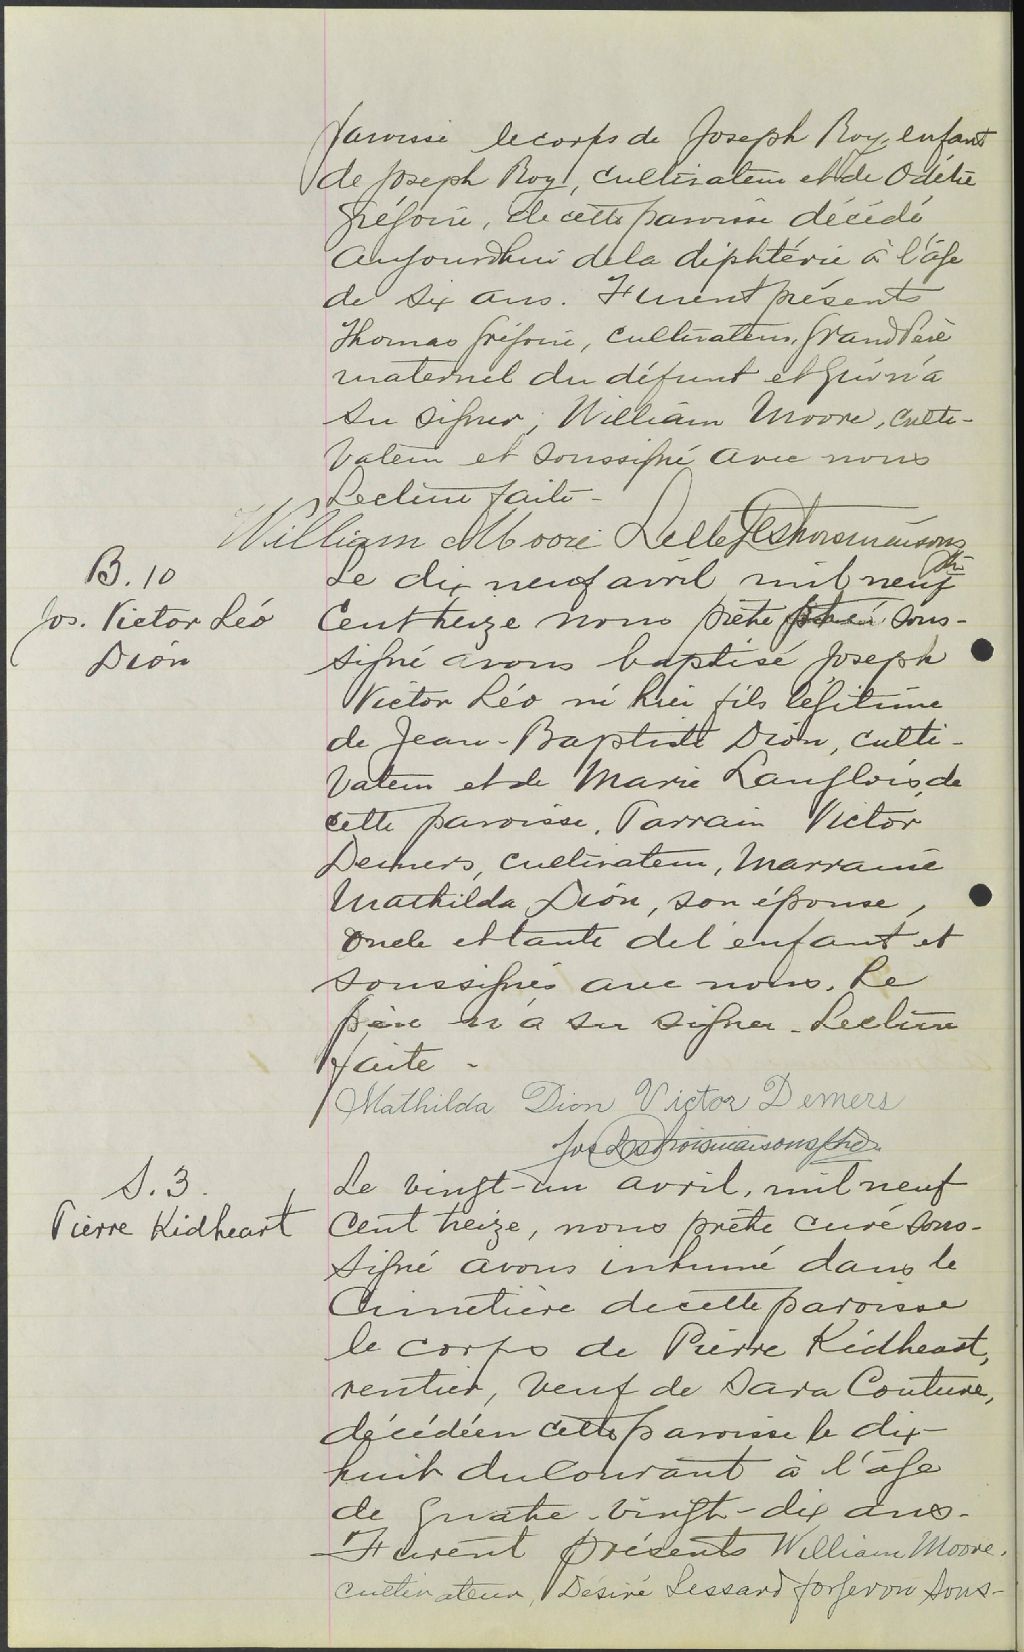 paroisse le corps de Joseph Roy, enfant
de Joseph Roy, cultivateur et de Odélie
Grégoire, de cette paroisse décédé
aujourd'hui de la diphtérie à l'âge
de six ans. Furent présents
Thomas Grégoire, cultivateur, grand Père
maternel du défunt et qui n'a
su signer, William Moore, culti-
vateur et soussigné avec nous
Lecture faite -
William Moore J. Destroismaisons
ptre
B. 10
Jos. Victor Léo
Dion
Le dix neuf avril mil neuf
cent treize nous prêtre curé sous-
signé avons baptisé Joseph
Victor Léo né hier fils légitime
de Jean-Baptiste Dion, culti-
vateur et de Marie Langlois, de
cette paroisse. Parrain Victor
Demers, cultivateur, Marraine
Mathilda Dion, son épouse,
oncle et tante de l'enfant et
soussignés avec nous. Le
père n'a su signer - Lecture
faite -
Mathilda Dion Victor Demers
Jos Destroismaisons ptre
S. 3.
Pierre Kidheart
Le vingt-un avril, mil neuf
cent treize, nous prêtre curé sous-
signé avons inhumé dans le
Cimetière de cette paroisse
le corps de Pierre Kidheart,
rentier, veuf de Sara Couture,
décédé en cette paroisse le dix-
huit du courant à l'âge
de quatre-vingt-dix ans.
Furent présents William Moore,
cultivateur, Désiré Lessard forgeron sous-